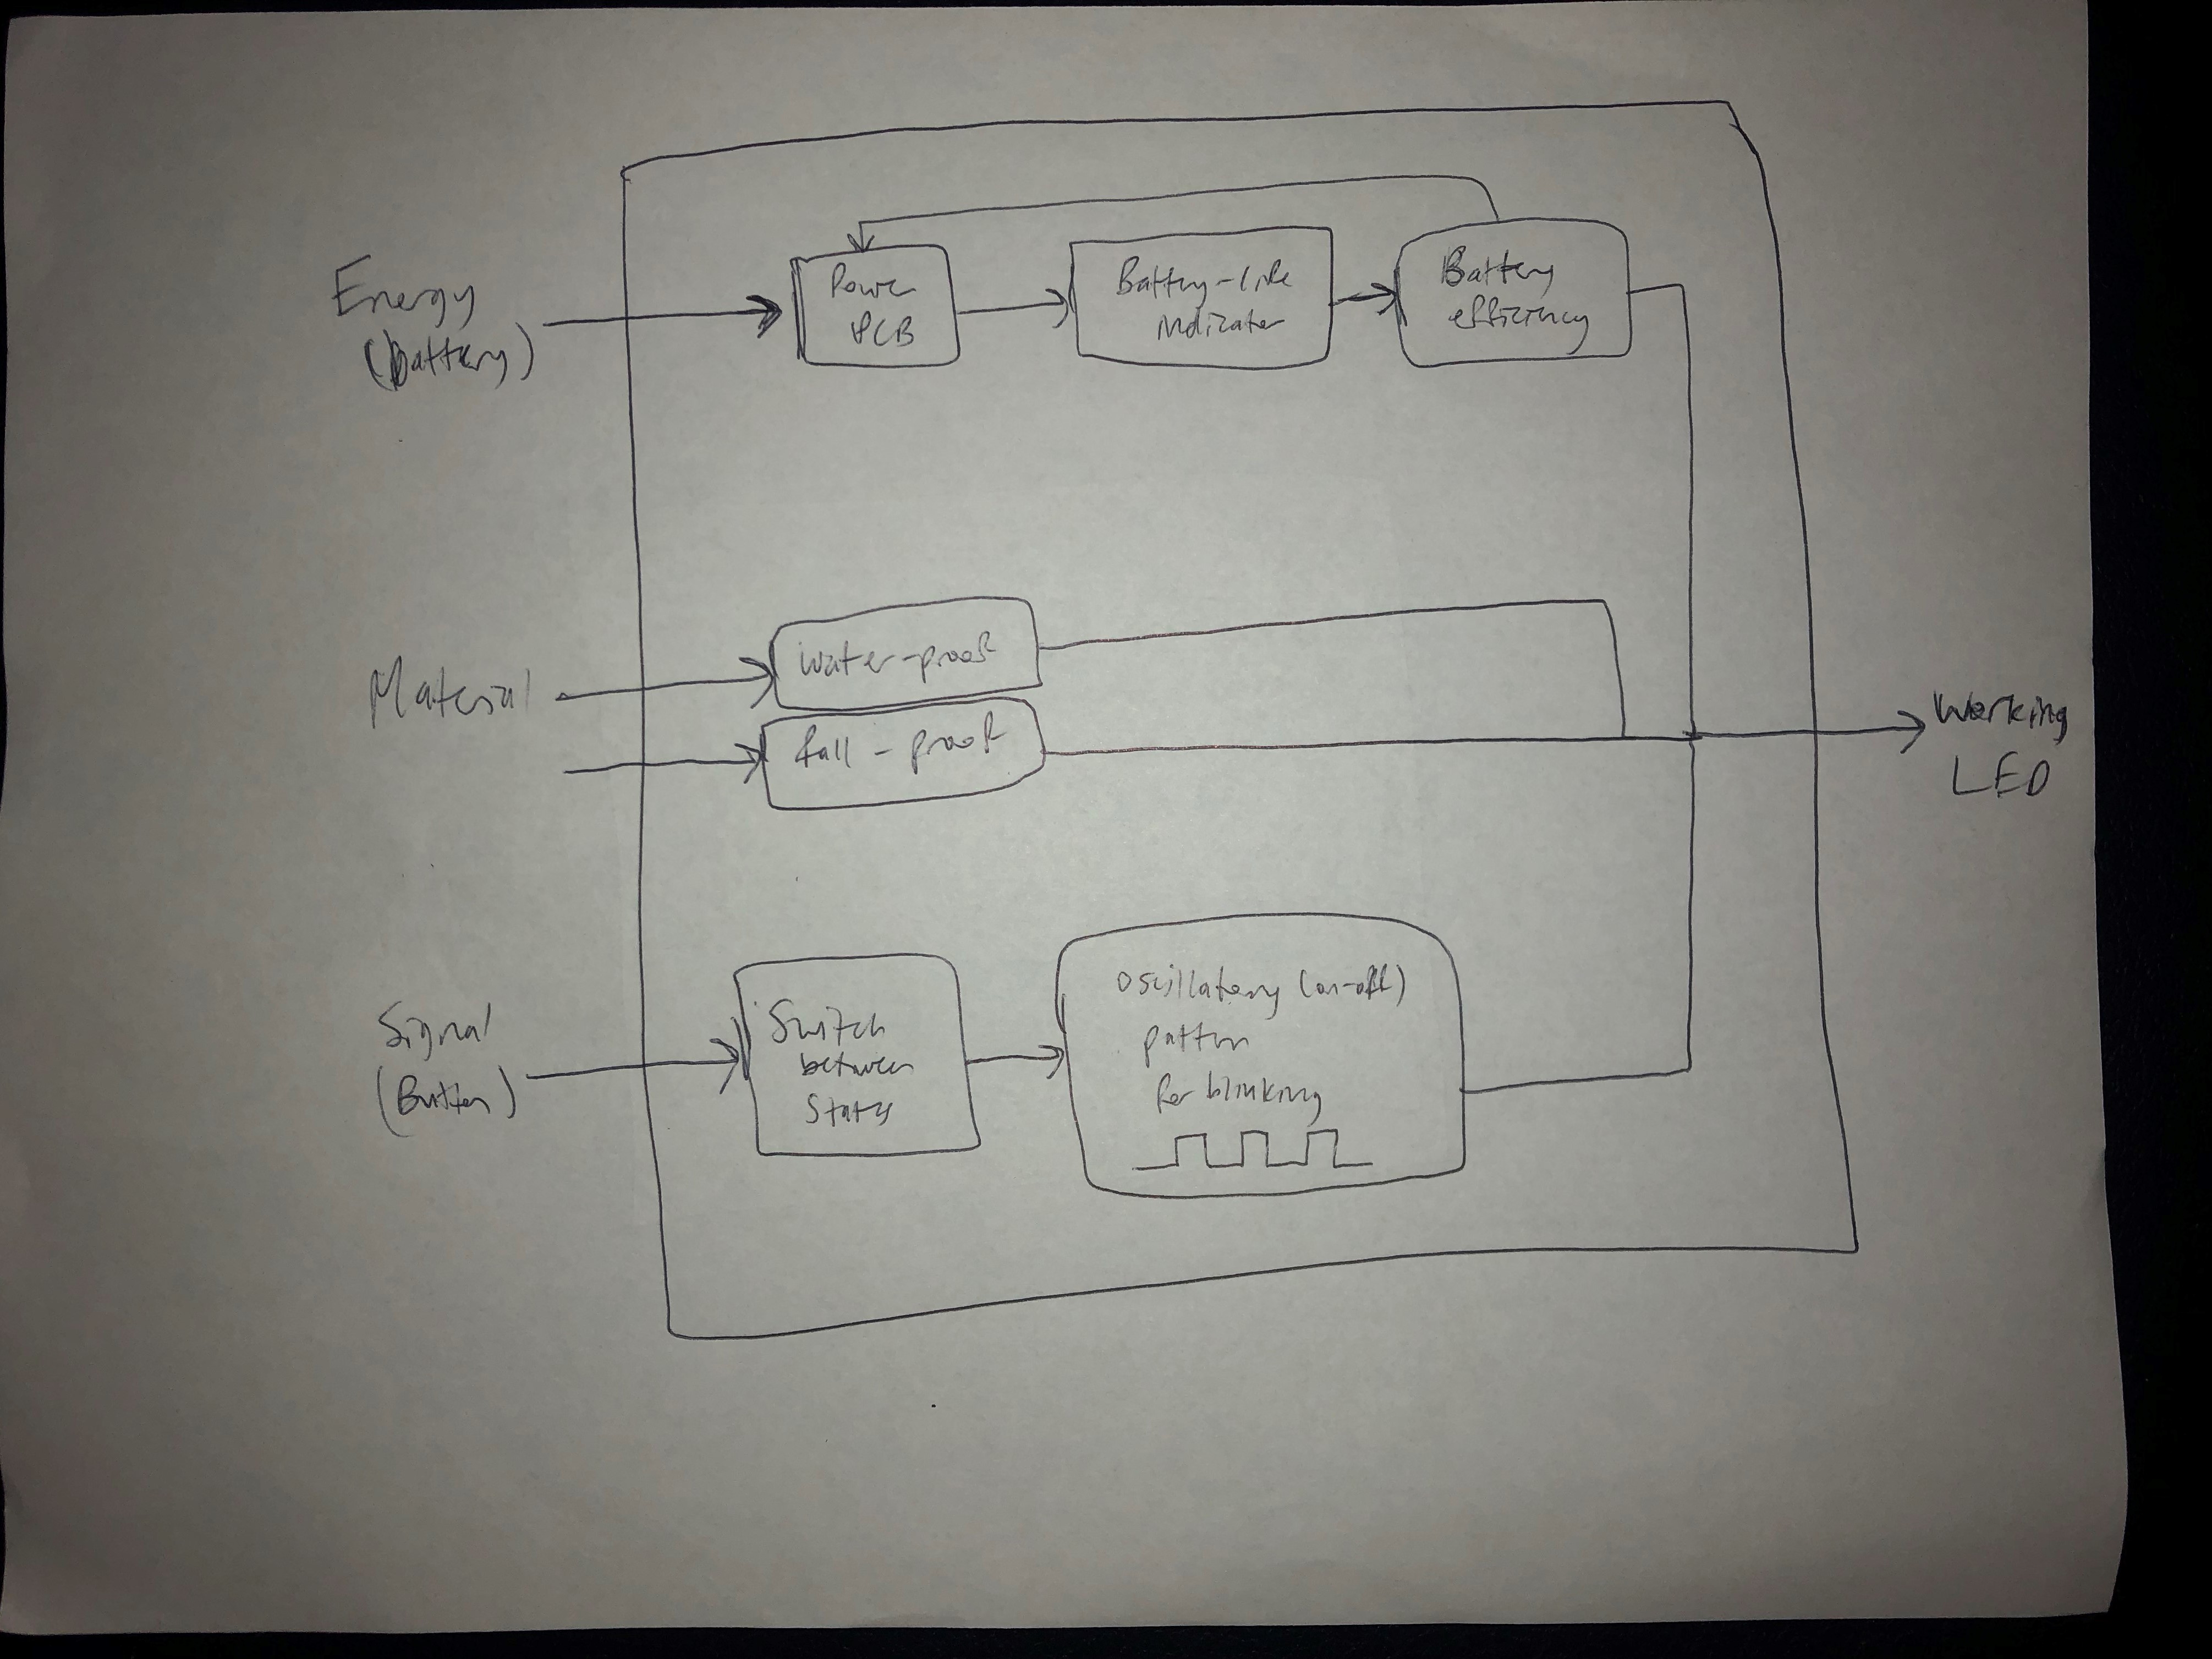 Energy
(Battery)
Power
PCB
Battery-life
indicator
Battery
efficiency
Material
water-proof
fall-proof
Working
LED
Signal
(Button)
Switch
between
States
oscillatory (on-off)
pattern
for blinking